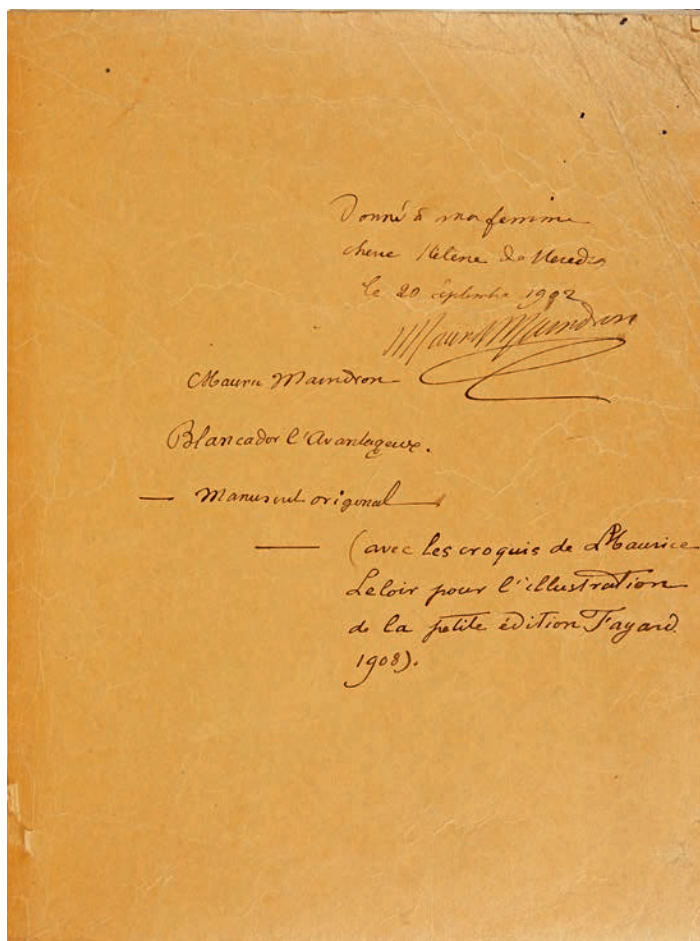 Donné à ma femme
chere Helene de Heredia
le 20 septembre 1902
Maurice Maindron
Maurice Maindron
Blancador l'Avantageux.
— Manuscrit original —
— (avec les croquis de Maurice
Leloir pour l'illustration
de la petite édition Fayard.
1908).